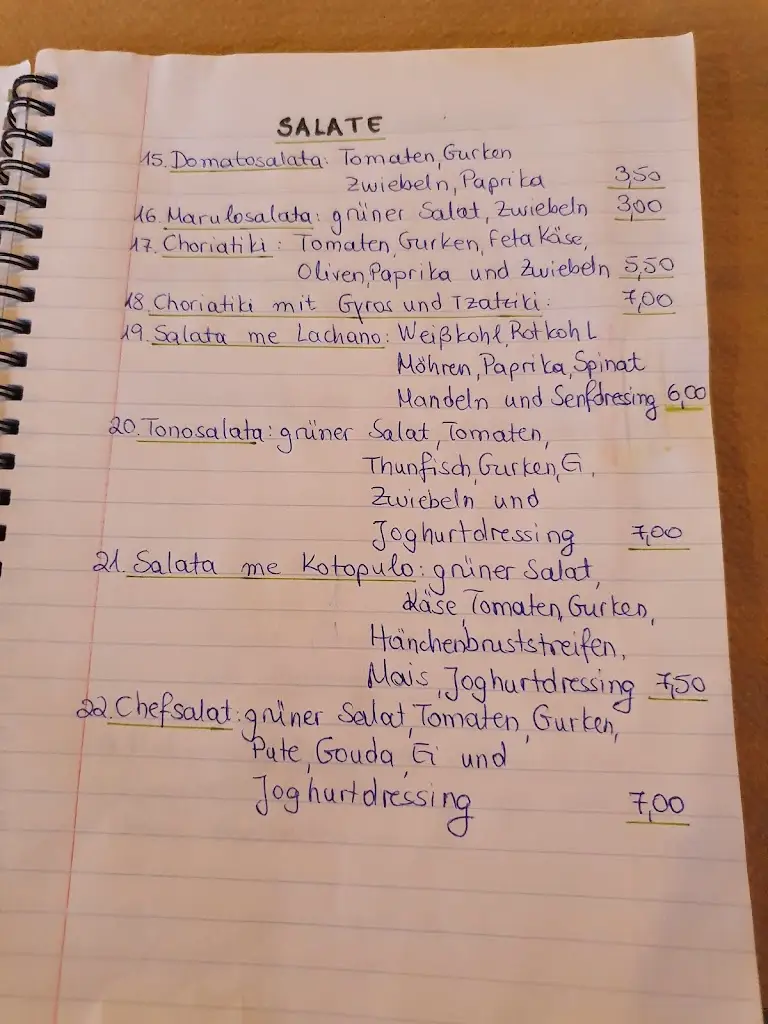 SALATE
15. Domatosalata: Tomaten, Gurken
Zwiebeln, Paprika 3,50
16. Marulosalata: grüner Salat, Zwiebeln 3,00
17. Choriatiki: Tomaten, Gurken, Feta Käse,
Oliven, Paprika und Zwiebeln 5,50
18. Choriatiki mit Gyros und Tzatziki: 7,00
19. Salata me Lachano: Weißkohl, Rotkohl
Möhren, Paprika, Spinat
Mandeln und Senfdressing 6,00
20. Tonosalata: grüner Salat, Tomaten,
Thunfisch, Gurken, Ei,
Zwiebeln und
Joghurtdressing 7,00
21. Salata me Kotopulo: grüner Salat,
Käse, Tomaten, Gurken,
Hänchenbruststreifen,
Mais, Joghurtdressing 7,50
22. Chefsalat: grüner Salat, Tomaten, Gurken,
Pute, Gouda, Ei und
Joghurtdressing 7,00